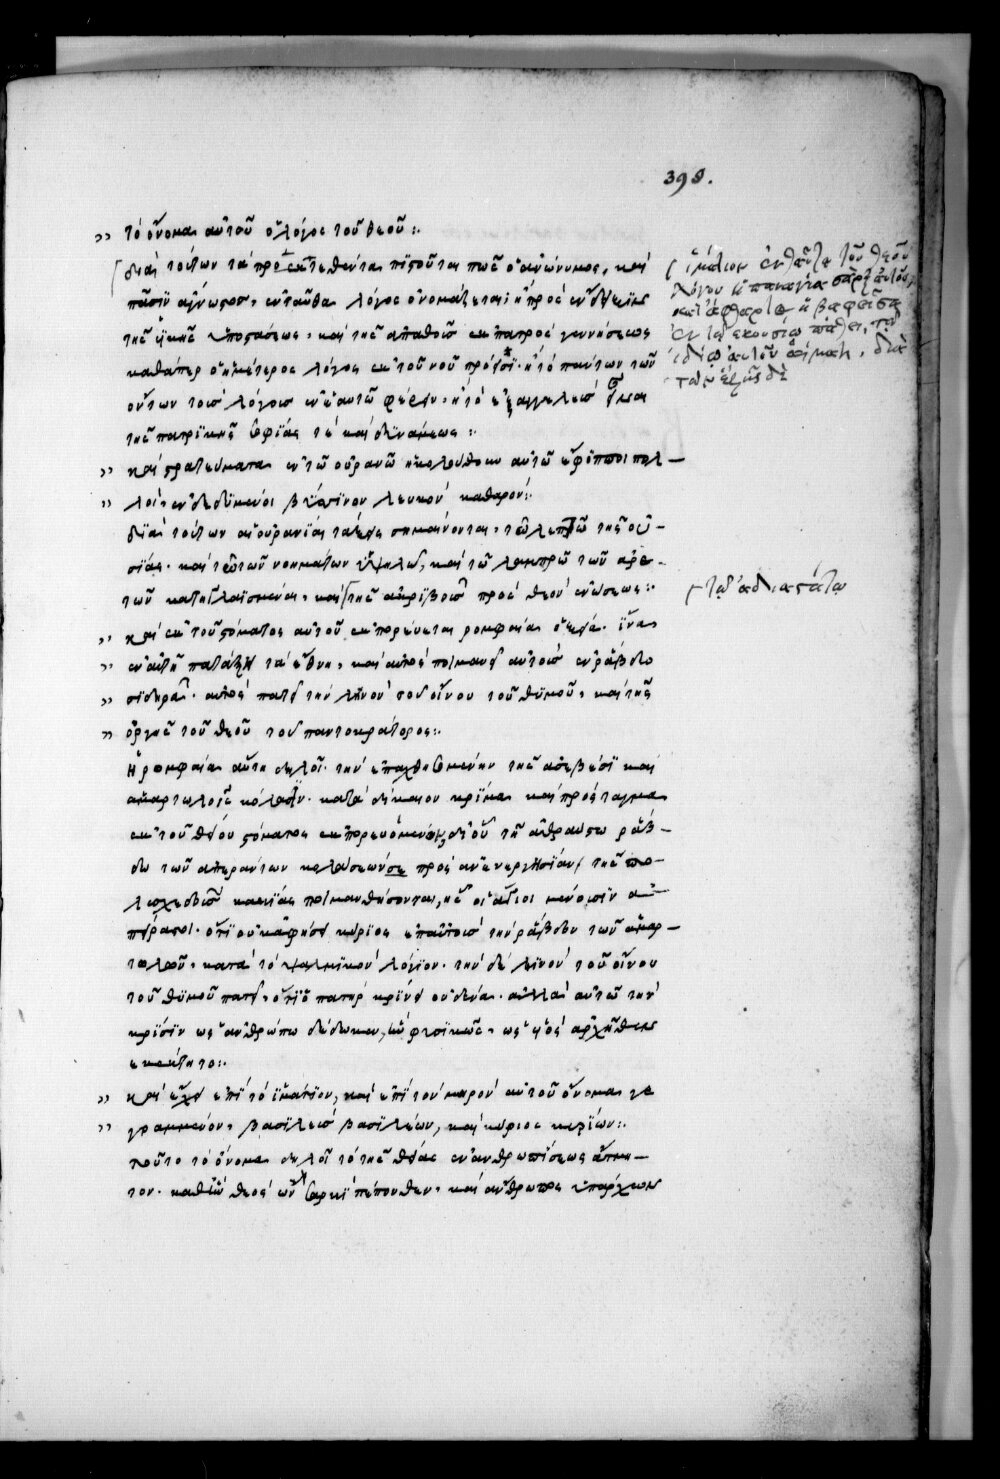 398.
" τὸ ὄνομα αὐτοῦ ὁ λόγος τοῦ θεοῦ:.
διὰ τούτων τὰ προεκτεθέντα πιστοῦται πῶς ὁ ἀνώνυμος, καὶ
πᾶσιν ἄγνωστος, ἐνταῦθα λόγος ὀνομάζεται; ἢ πρὸς ἔνδειξιν
τῆς ὑϊκῆς ὑποστάσεως, καὶ τῆς ἀπαθοῦς ἐκ πατρὸς γεννήσεως
καθάπερ ὁ ἡμέτερος λόγος ἐκ τοῦ νοῦ πρόεισι. ἢ τὸ πάντων τῶν
ὄντων τοὺς λόγους ἐν ἑαυτῷ φέρειν. ἢ τὸ ἐξαγγελεὺς εἶναι
τῆς πατρικῆς σοφίας τὲ καὶ δυνάμεως:.
" καὶ στρατεύματα ἐν τῷ οὐρανῷ ἠκολούθουν αὐτῷ ἐφίπποι πολ-
" λοί, ἐνδεδυμένοι βύσσινον λευκὸν καθαρόν:.
διὰ τούτων αἱ οὐράνιαι τάξεις σημαίνονται, τῷ λεπτῷ τῆς οὐ-
σίας. καὶ τῷ τῶν νοημάτων ὑψηλῷ, καὶ τῷ λαμπρῷ τῶν ἀρε-
τῶν κατηγλαϊσμέναι, καὶ τῆς ἀκριβοῦς πρὸς θεὸν ἑνώσεως:.
" καὶ ἐκ τοῦ στόματος αὐτοῦ ἐκπορεύεται ρομφαία ὀξεῖα. ἵνα
" ἐν αὐτῇ πατάξῃ τὰ ἔθνη, καὶ αὐτὸς ποιμανεῖ αὐτοὺς ἐν ράβδῳ
" σιδηρᾷ. αὐτὸς πατεῖ τὴν ληνὸν τοῦ οἴνου τοῦ θυμοῦ, καὶ τῆς
" ὀργῆς τοῦ θεοῦ τοῦ παντοκράτορος:.
Ἡ ρομφαία αὕτη δηλοῖ τὴν ἐπαχθησομένην τῆς ἀσεβέσι καὶ
ἁμαρτωλοῖς κόλασιν. κατὰ δίκαιον κρίμα καὶ πρόσταγμα
ἐκ τοῦ θείου στόματος ἐκπορευόμενον, δι' οὗ τῇ ἀθραύστῳ ράβ-
δῳ τῶν ἀπεράντων κολάσεων πρὸς ἀνενεργησίαν τῆς πο-
λυσχεδοῦς κακίας ποιμανθήσονται, ἧς οἱ ἅγιοι μένουσιν ἀ-
πείρατοι. ὅτι οὐκ ἀφήσει κύριος ἐπ' αὐτοὺς τὴν ράβδον τῶν ἁμαρ-
τωλῶν, κατὰ τὸ ψαλμικὸν λόγιον. τὴν δὲ λινὸν τοῦ οἴνου
τοῦ θυμοῦ πατεῖ, ὅτι ὁ πατὴρ κρίνει οὐδένα. ἀλλὰ αὐτῷ τὴν
κρίσιν ὡς ἀνθρώπῳ δέδωκεν, ἣν φυσικῶς, ὡς υἱὸς ἀρχῆθεν
ἐκέκτητο:.
" καὶ ἔχει ἐπὶ τὸ ἱμάτιον, καὶ ἐπὶ τὸν μηρὸν αὐτοῦ ὄνομα γε
" γραμμένον, βασιλεὺς βασιλέων, καὶ κύριος κυρίων:.
τοῦτο τὸ ὄνομα δηλοῖ τὸ τῆς θείας ἐνανθρωπίσεως ἄτμη-
τον. καθ' ἣν θεὸς ὢν σαρκὶ πέπονθεν, καὶ ἄνθρωπος ὑπάρχων
ἱμάτιον ἐνταῦθα τοῦ θεοῦ
λόγου ἡ παναγία σὰρξ αὐτοῦ,
καὶ ἄφθαρτος ἡ βαφεῖσα
ἐν τῷ ἑκουσίῳ πάθει, τῷ
ἰδίῳ αὐτοῦ αἵματι. διὰ
τῷ ἀδιαστάτῳ